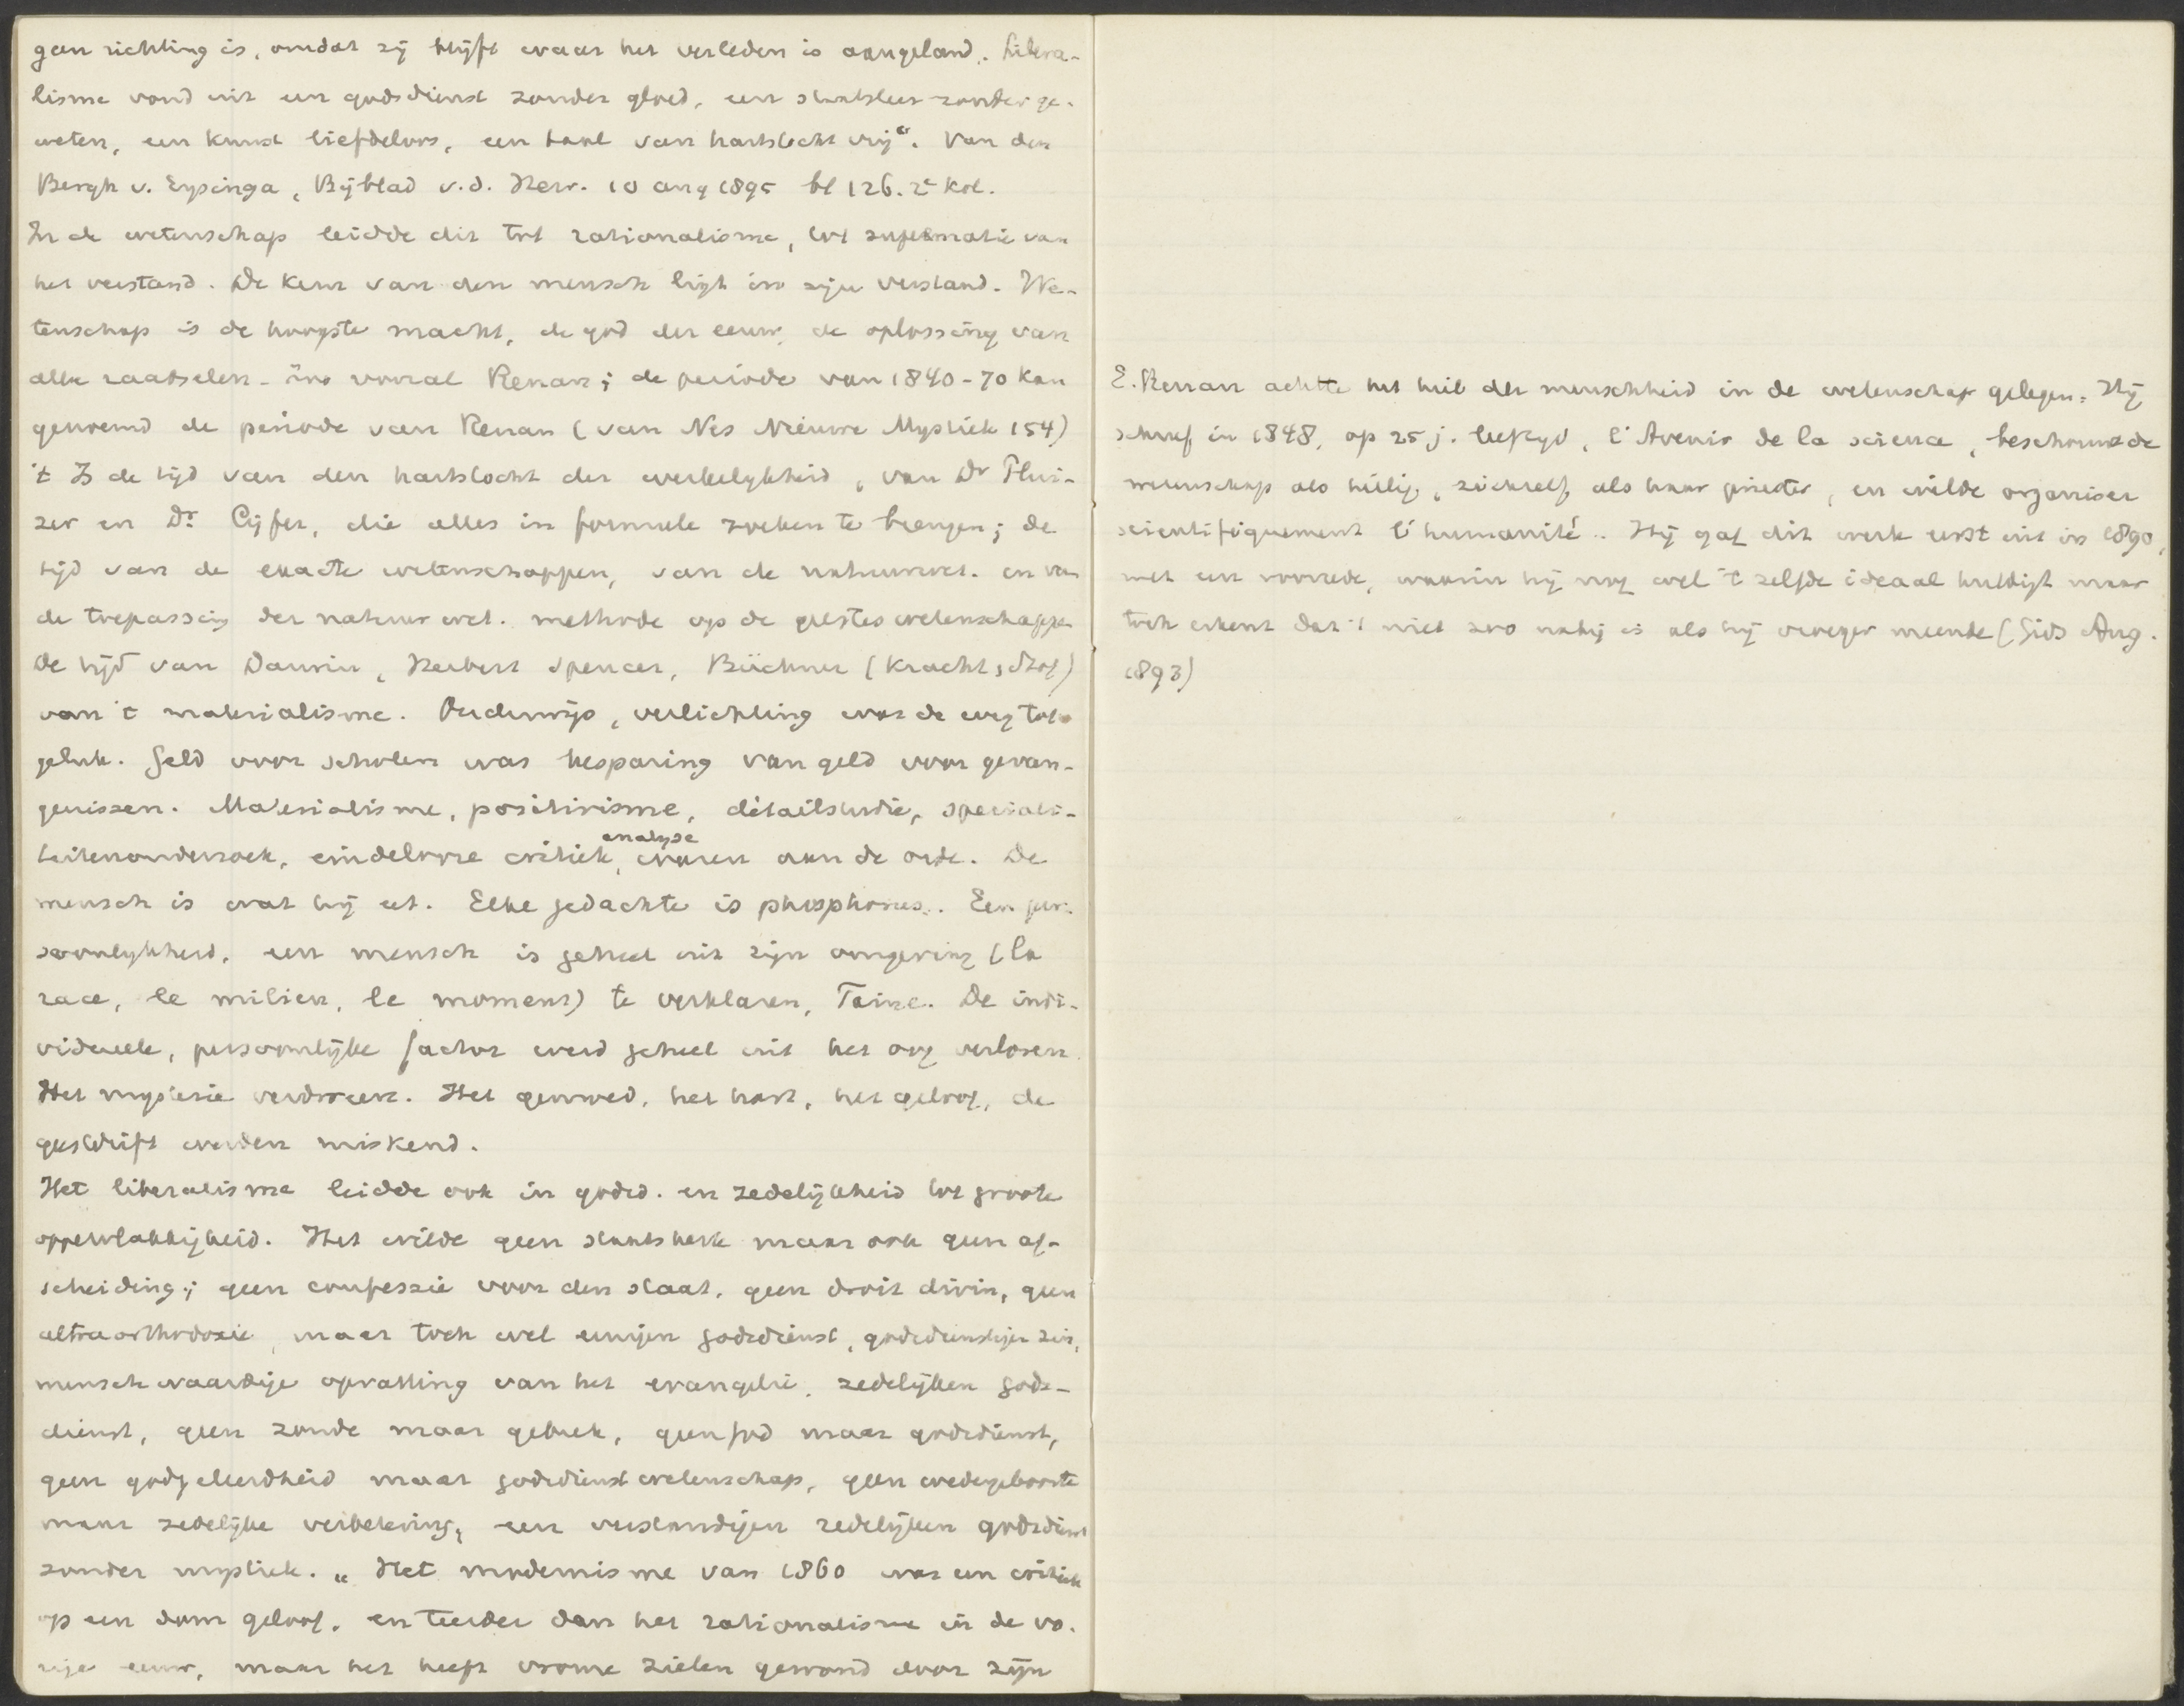 geen richting is, omdat zij blijft waar het verleden is aangeland. Libera-
lisme vond uit een godsdienst zonder gloed, een staatsleer zonder ge-
weten, een kunst liefdeloos, een taal van hartstocht vrij". Van den
Bergh v. Eysinga, Bijblad v.d. Herv. 10 aug 1895 bl 126. 2e kol.
In de wetenschap leidde dit tot rationalisme, tot suprematie van
het verstand. De kern van den mensch ligt in zijn verstand. We-
tenschap is de hoogste macht, de god der eeuw, de oplossing van
alle raadselen - zoo vooral Renan; de periode van 1840-70 kan
genoemd de periode van Renan (van Nes Nieuwe Mystiek 154)
't Is de tijd van den hartstocht der werkelijkheid, van Dr Plui-
zer en Dr. Cijfer, die alles in formule zoeken te brengen; de
tijd van de exacte wetenschappen, van de natuurwet. en van
de toepassing der natuurwet. methode op de geesteswetenschappen
De tijd van Darwin, Herbert Spencer, Büchner (Kracht, Stof)
van 't materialisme. Onderwijs, verlichting was de weg tot
geluk. Geld voor scholen was besparing van geld voor gevan-
genissen. Materialisme, positivisme, détailstudie, speciali-
teitenonderzoek, eindelooze critiek, analyse waren aan de orde. De
mensch is wat hij eet. Elke gedachte is phosphorus. Een per-
soonlijkheid, een mensch is geheel uit zijn omgeving (la
race, le milieu, le moment) te verklaren, Taine. De indi-
vidueele, persoonlijke factor werd geheel uit het oog verloren.
Het mysterie verdween. Het gemoed, het hart, het geloof, de
geestdrift werden miskend.
Het liberalisme leidde ook in godsd. en zedelijkheid tot groote
oppervlakkigheid. Het wilde geen staatskerk maar ook geen af-
scheiding; geen confessie voor den staat, geen droit divin, geen
ultraorthodoxie, maar toch wel eenigen godsdienst, godsdienstigen zin,
menschwaardige opvatting van het evangelie, zedelijken gods-
dienst, geen zonde maar gebrek, geen god maar godsdienst,
geen godgeleerdheid maar godsdienstwetenschap, geen wedergeboorte
maar zedelijke verbetering, een verstandigen redelijken godsdienst
zonder mystiek. „Het modernisme van 1860 was een critiek
op een dom geloof, en teerder dan het rationalisme in de vo-
rige eeuw, maar het heeft vrome zielen gewond door zijn
E. Renan achtte het heil der menschheid in de wetenschap gelegen. Hij
schreef in 1848, op 25 j. leeftijd, l'Avenir de la science, beschouwde
wetenschap als heilig, zichzelf als haar priester, en wilde organiser
scientifiquement l'humanité. Hij gaf dit werk eerst uit in 1890,
met een voorrede, waarin hij nog wel 't zelfde ideaal huldigt maar
toch erkent dat 't niet zoo nabij is als hij vroeger meende (Gids Aug.
1893)